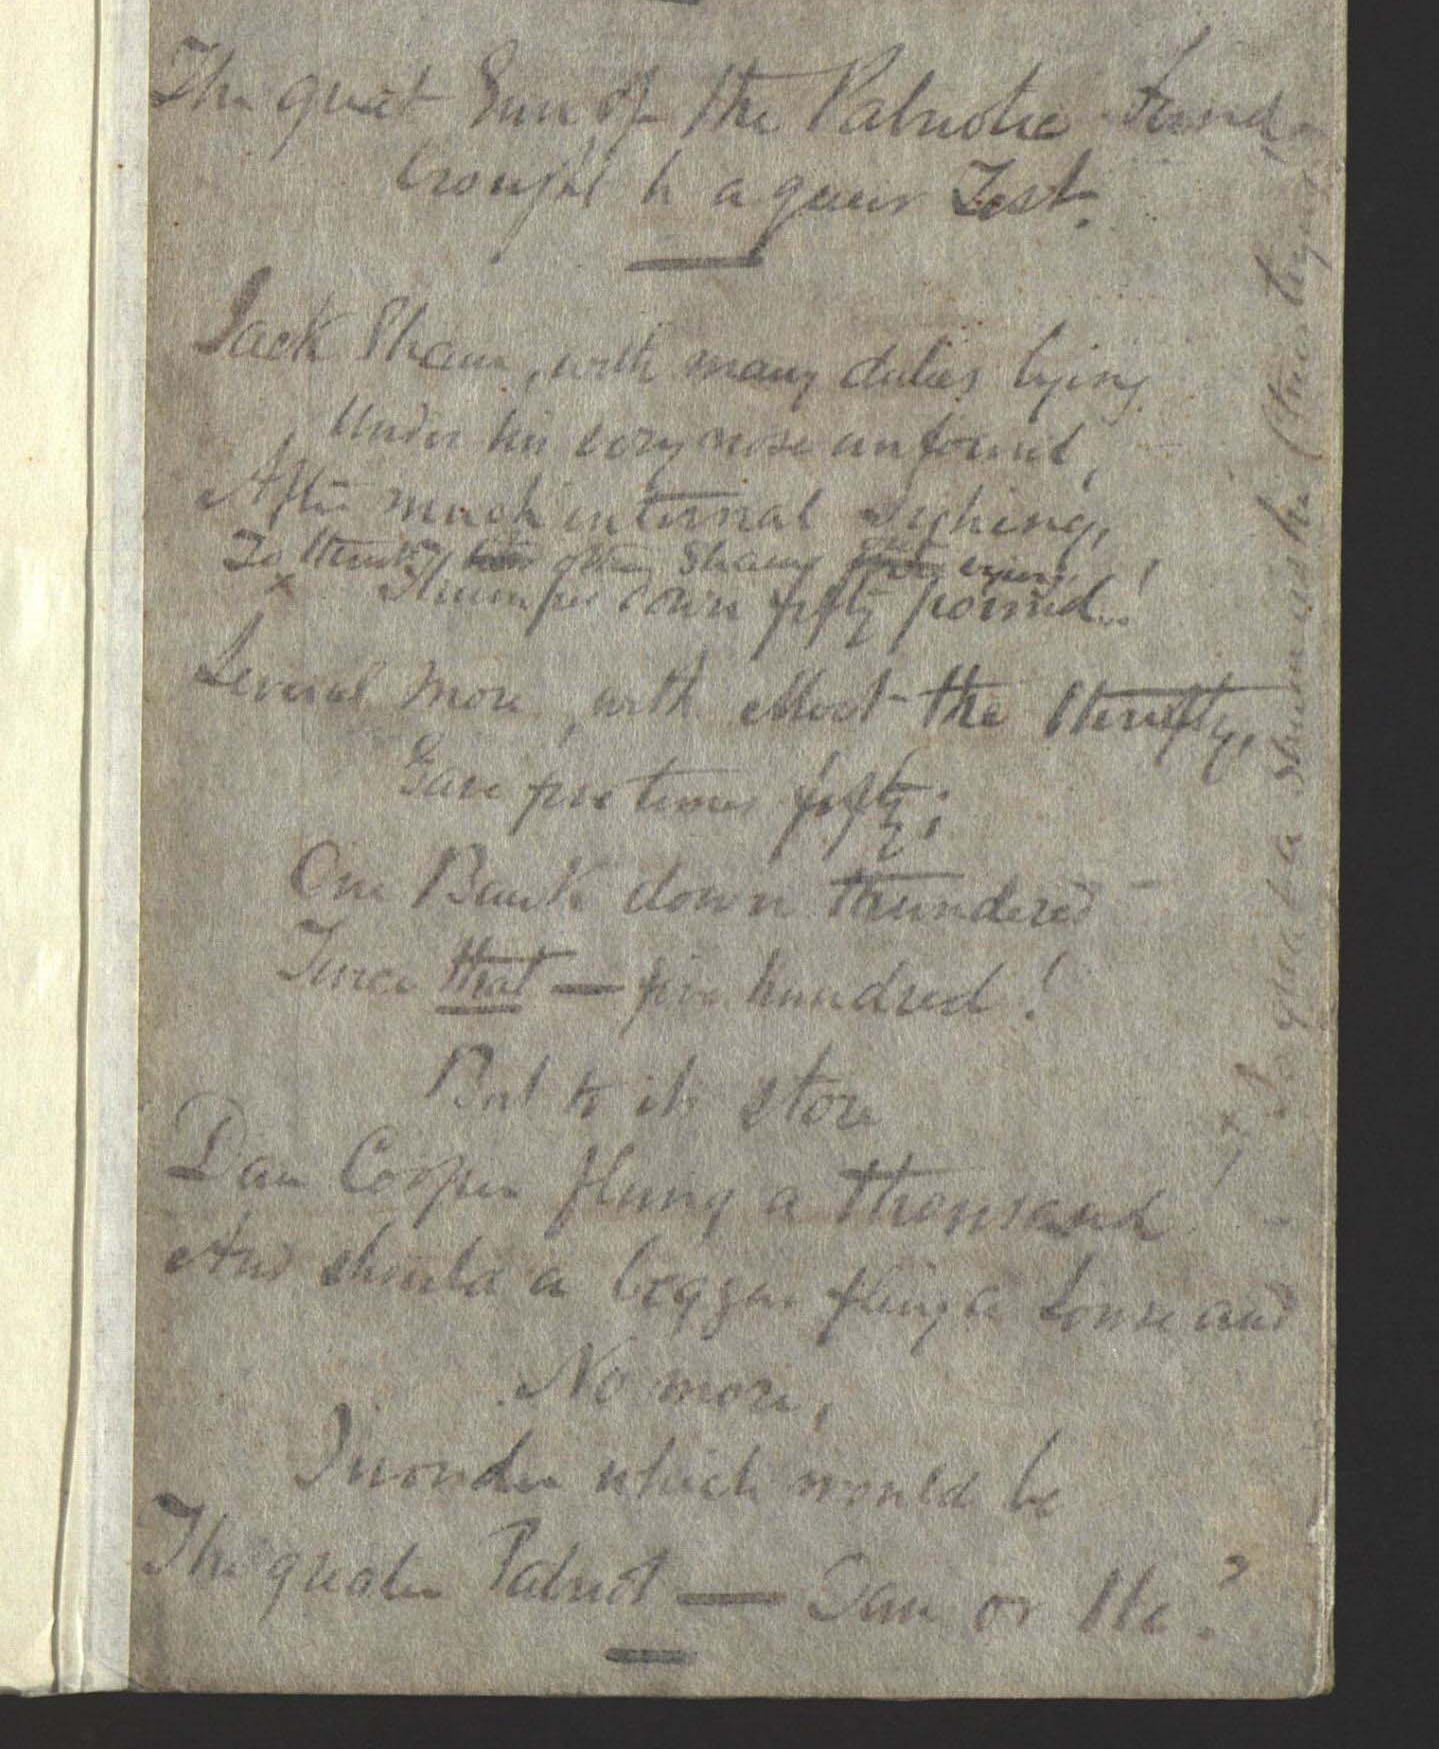 The great Sum of the Patriotic Fund,
brought to a queer Test.
Jack Sham, with many duties lying
Under his very nose unfound,
After much internal sighing,
To think of often Sham trying!
Thumped down fifty pound!
Several more, with effort the thrifty,
Gave five times fifty;
One Bank down thundered
Twice that — five hundred!
But to its store
Dan Cooper flung a thousand!
And should a beggar fling a Louse and
No more,
I wonder which would be
The greater Patriot — Dan or He?
x So great a sham is he